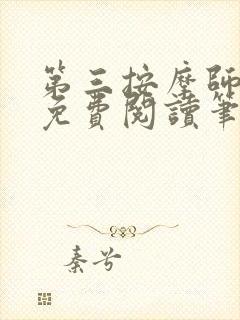 第三按摩師
免費閱讀筆
秦兮